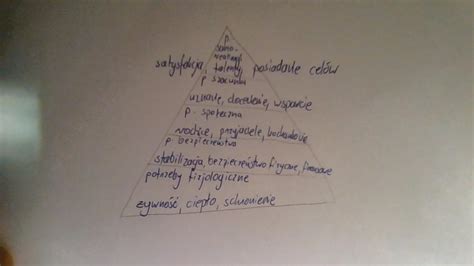 p.
samo-
realizacji
satysfakcja, talenty, posiadanie celów
p. szacunku
uznanie, docenienie, wsparcie
p. społeczna
rodzice, przyjaciele,
p. bezpieczeństwa
stabilizacja, bezpieczeństwo fizyczne, finansowe
potrzeby fizjologiczne
żywność, ciepło, schronienie